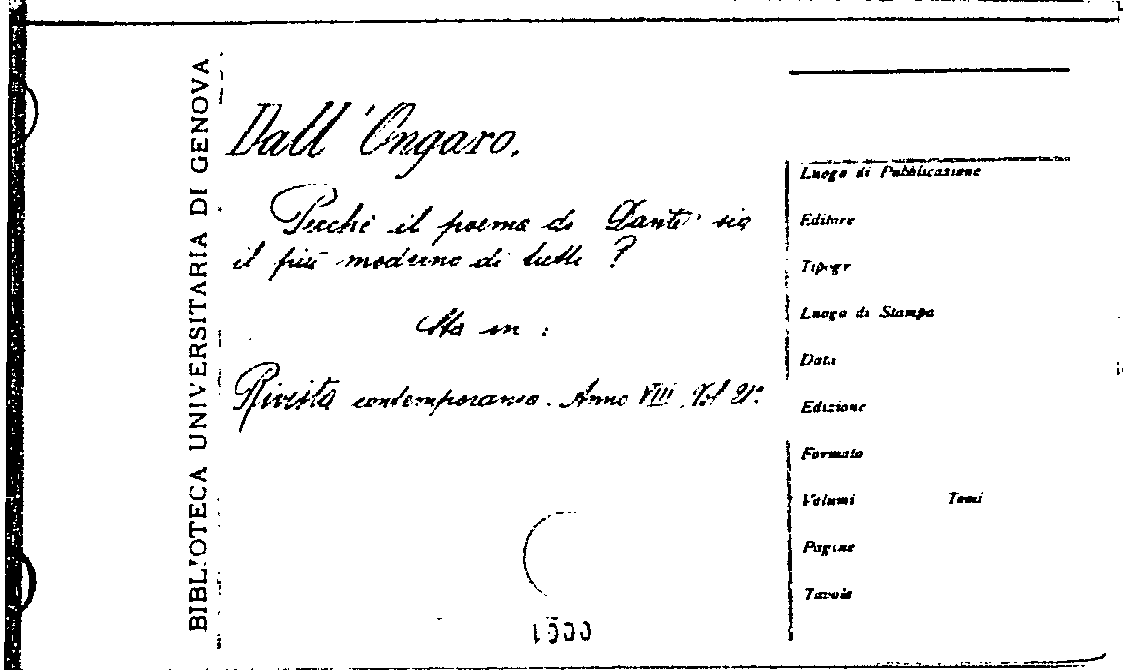 BIBLIOTECA UNIVERSITARIA DI GENOVA
Dall'Ongaro.
Perché il poema di Dante sia
il più moderno di tutti ?
Sta in :
Rivista contemporanea. Anno VIII. Vol 21º
Luogo di Pubblicazione
Editore
Tipogr
Luogo di Stampa
Data
Edizione
Formato
Volumi Tomi
Pagine
Tavole